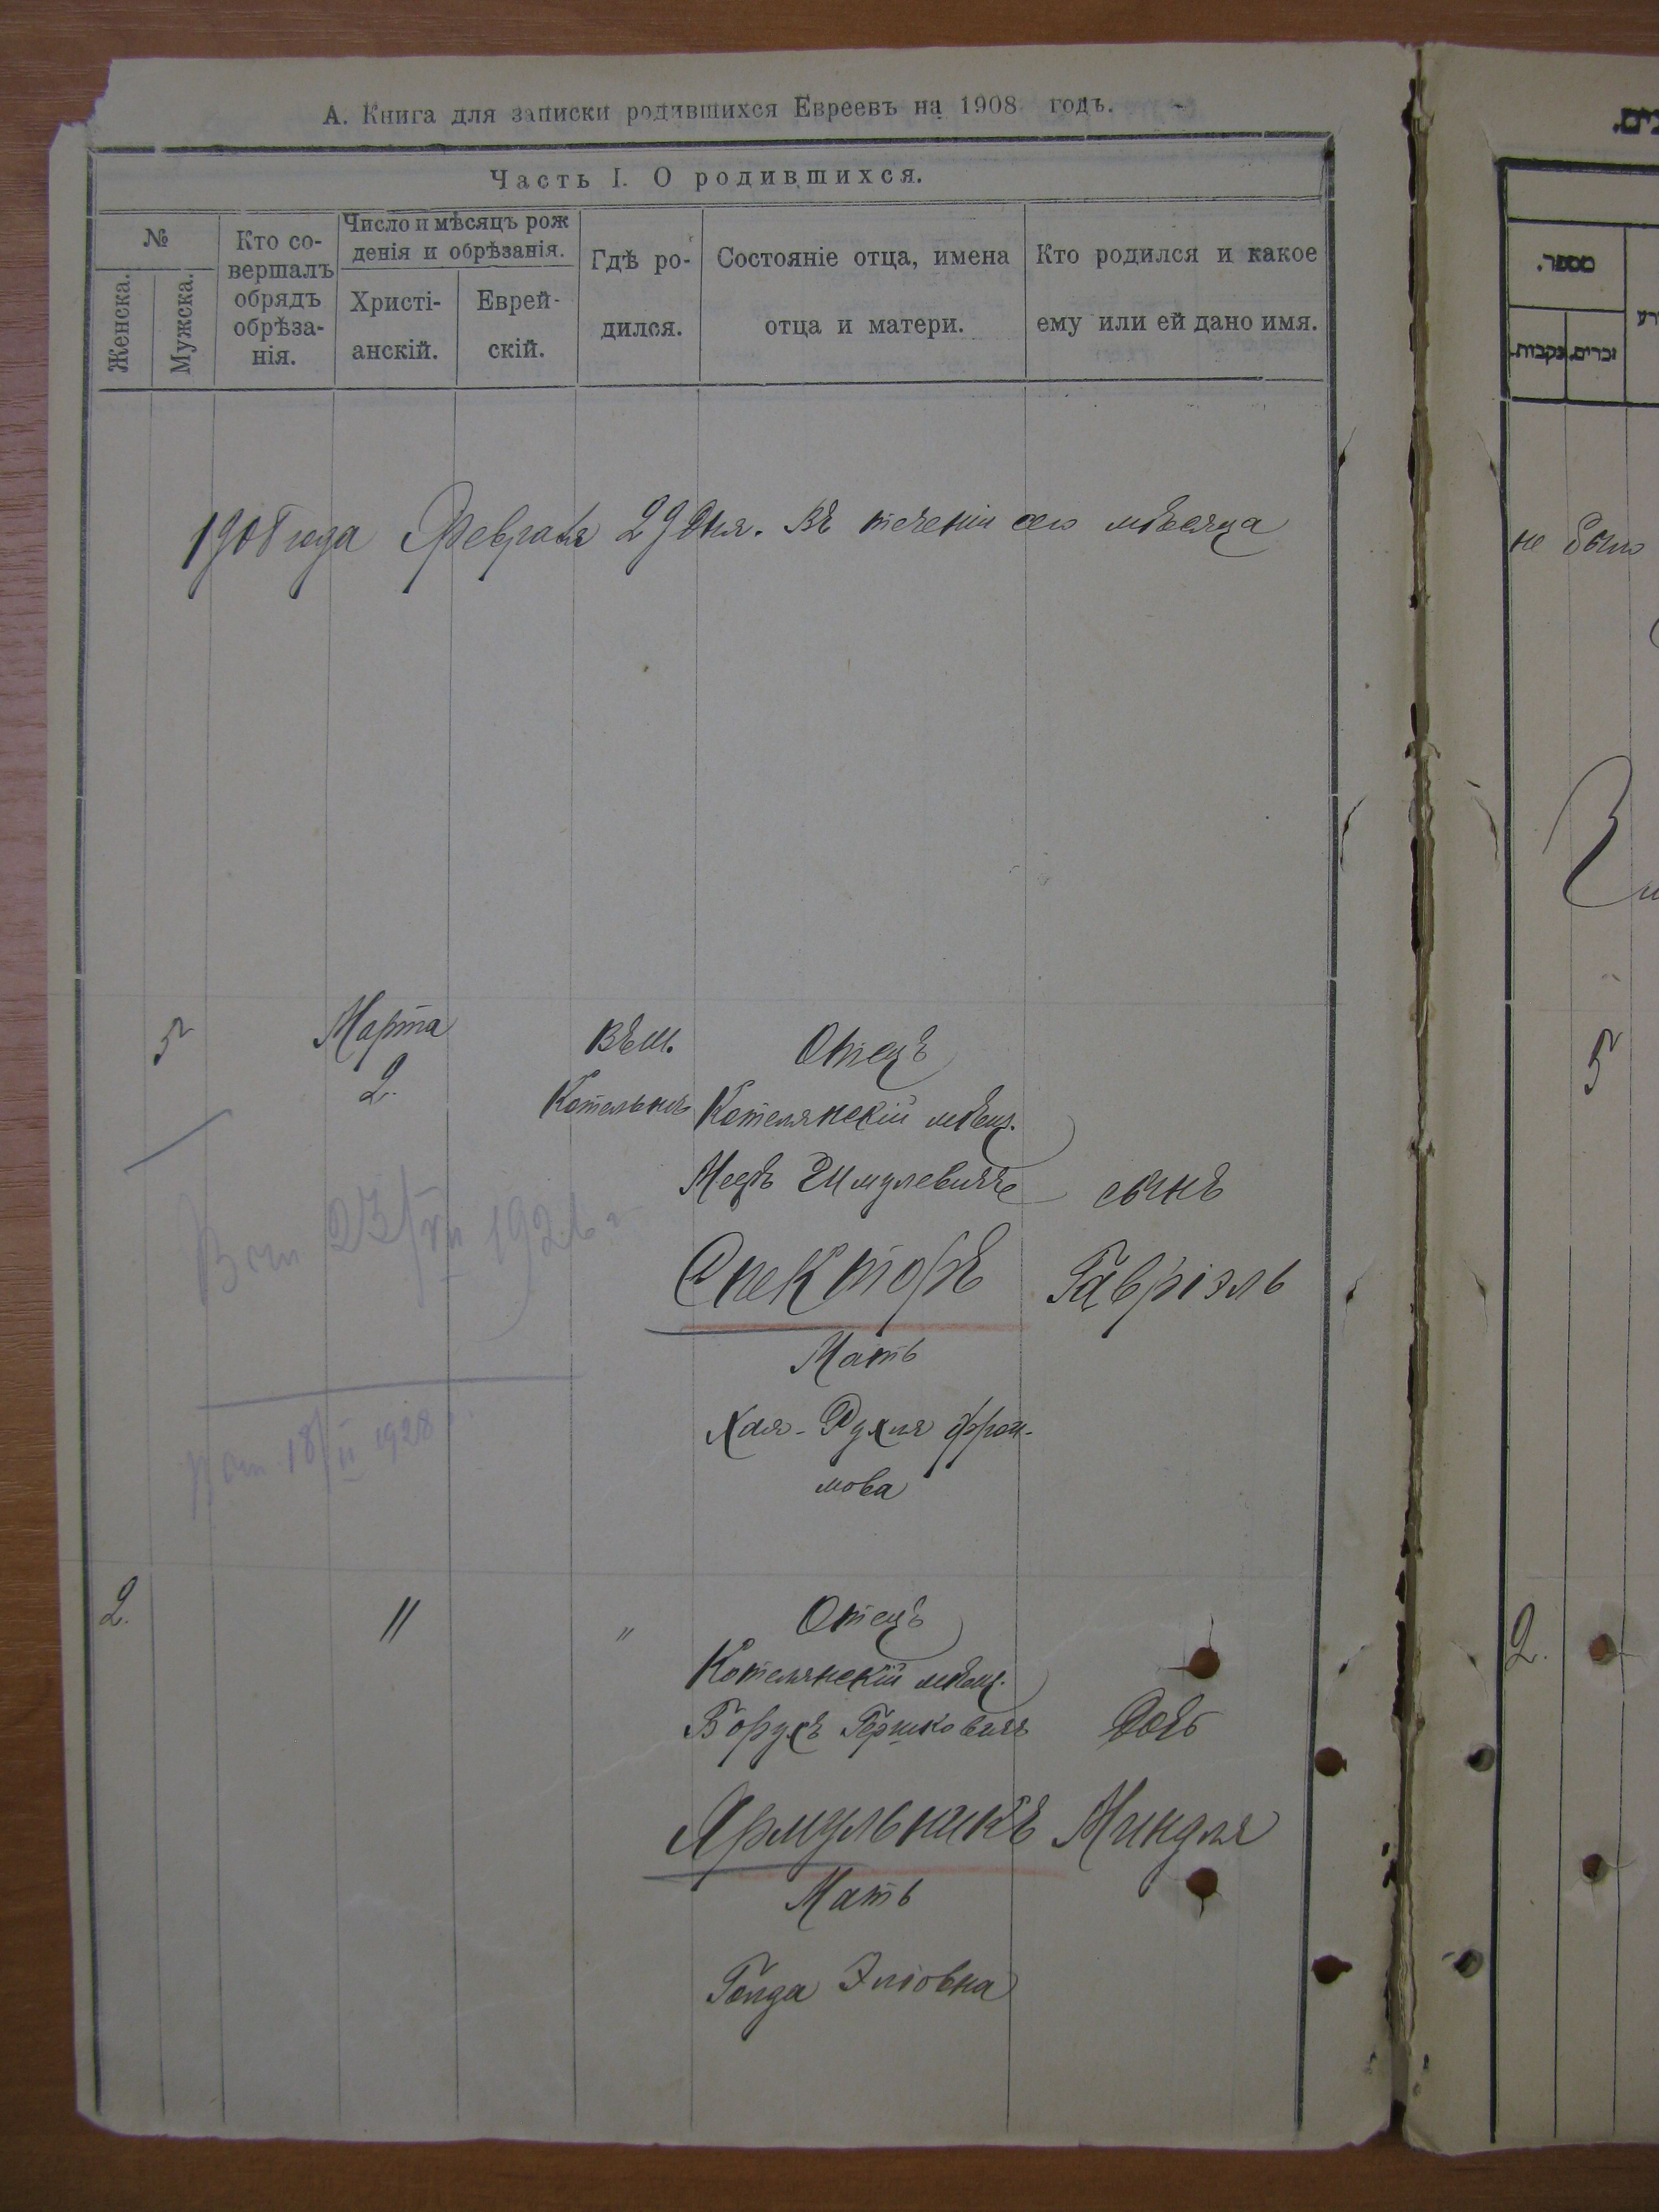 А. Книга для записки родившихся Евреевъ на 1908 годъ.
Часть I. О родившихся.
№
Женска.
Мужска.
Кто со-
вершалъ
обрядъ
обрѣза-
нія.
Число и мѣсяцъ рож
денія и обрѣзанія.
Христі-
анскій.
Еврей-
скій.
Гдѣ ро-
дился.
Состояніе отца, имена
отца и матери.
Кто родился и какое
ему или ей дано имя.
1908 года Февраля 29 дня. Въ теченіи сего мѣсяца
5
Марта
2.
Въ м.
Котельнѣ
Отецъ
Котелянскій мѣщ.
Шмулевичъ
Спекторъ
Мать
Хая-Рухля Фрои-
мова
сынъ
Гавріэль
18/II 1928
2.
"
"
Отецъ
Котелянскій мѣщ.
Борухъ Гершковичъ
Ярмульникъ
Мать
Голда Эліовна
дочь
Миндля
מספר.
זכרים.
נקבות.
не было
5
2.